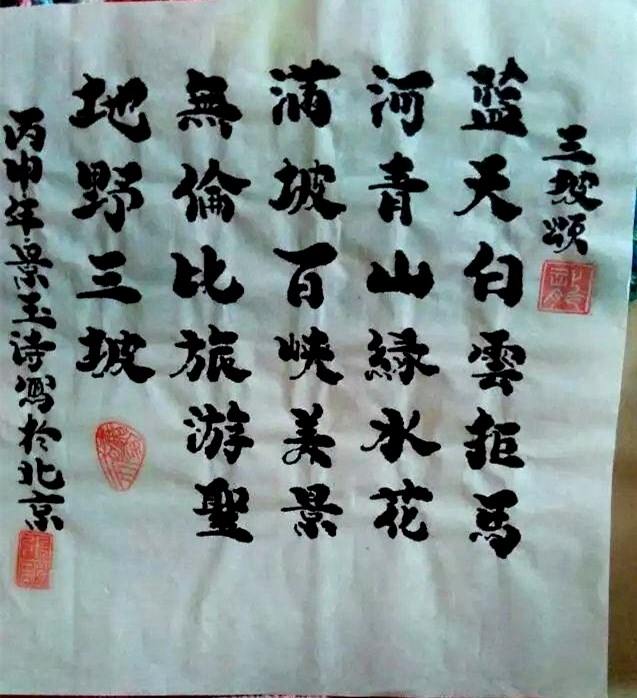 三坡頌
蓝天白雲拒馬
河青山緑水花
满坡百峡美景
無倫比旅游聖
地野三坡
丙申年景玉诗寫於北京